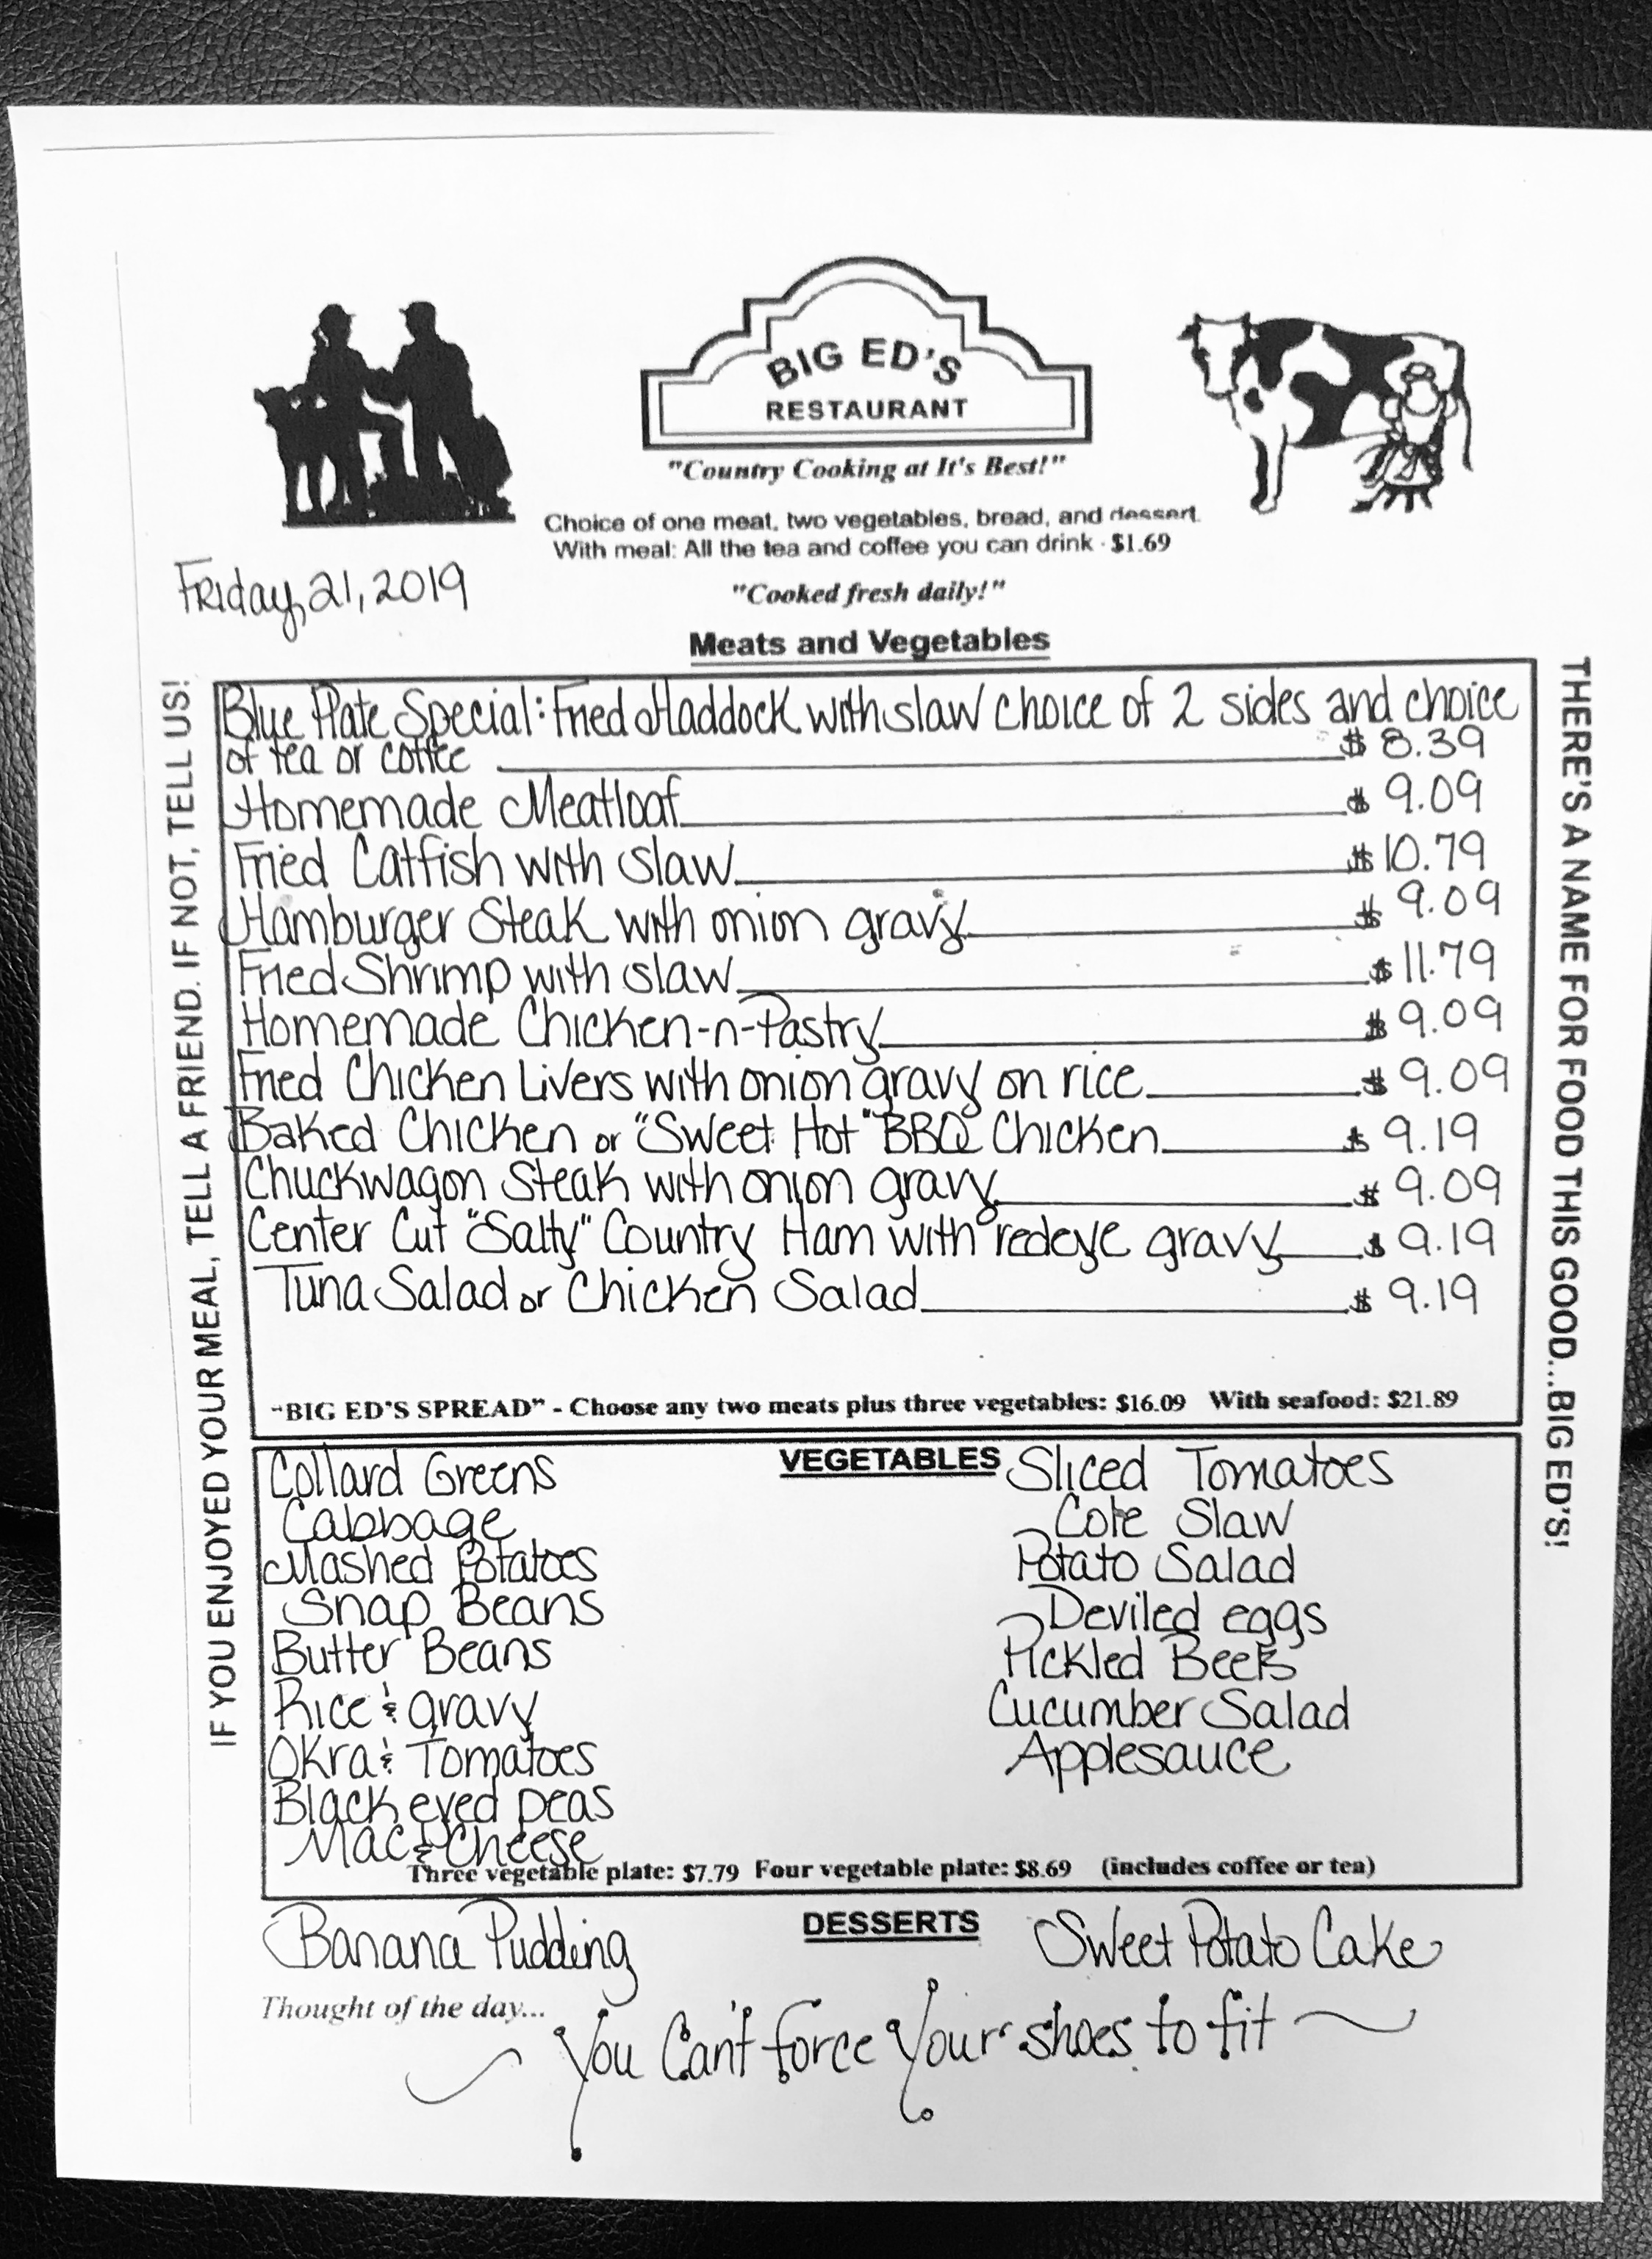 BIG ED'S
RESTAURANT
"Country Cooking at It's Best!"
Choice of one meat, two vegetables, bread, and dessert.
With meal: All the tea and coffee you can drink - $1.69
"Cooked fresh daily!"
Friday, 21, 2019
Meats and Vegetables
IF YOU ENJOYED YOUR MEAL, TELL A FRIEND. IF NOT, TELL US!
Blue Plate Special: Fried Haddock with slaw choice of 2 sides and choice
of tea or coffee $ 8.39
Homemade Meatloaf $ 9.09
Fried Catfish with slaw $ 10.79
Hamburger Steak with onion gravy $ 9.09
Fried Shrimp with slaw $ 11.79
Homemade Chicken-n-Pastry $ 9.09
Fried Chicken Livers with onion gravy on rice $ 9.09
Baked Chicken or "Sweet Hot" BBQ Chicken $ 9.19
Chuckwagon Steak with onion gravy $ 9.09
Center Cut "Salty" Country Ham with redeye gravy $ 9.19
Tuna Salad or Chicken Salad $ 9.19
"BIG ED'S SPREAD" - Choose any two meats plus three vegetables: $16.09 With seafood: $21.89
THERE'S A NAME FOR FOOD THIS GOOD...BIG ED'S!
VEGETABLES
Collard Greens
Cabbage
Mashed Potatoes
Snap Beans
Butter Beans
Rice & gravy
Okra & Tomatoes
Black eyed peas
Mac & Cheese
Sliced Tomatoes
Cole Slaw
Potato Salad
Deviled eggs
Pickled Beets
Cucumber Salad
Applesauce
Three vegetable plate: $7.79 Four vegetable plate: $8.69 (includes coffee or tea)
DESSERTS
Banana Pudding
Sweet Potato Cake
Thought of the day...
You Can't force your shoes to fit